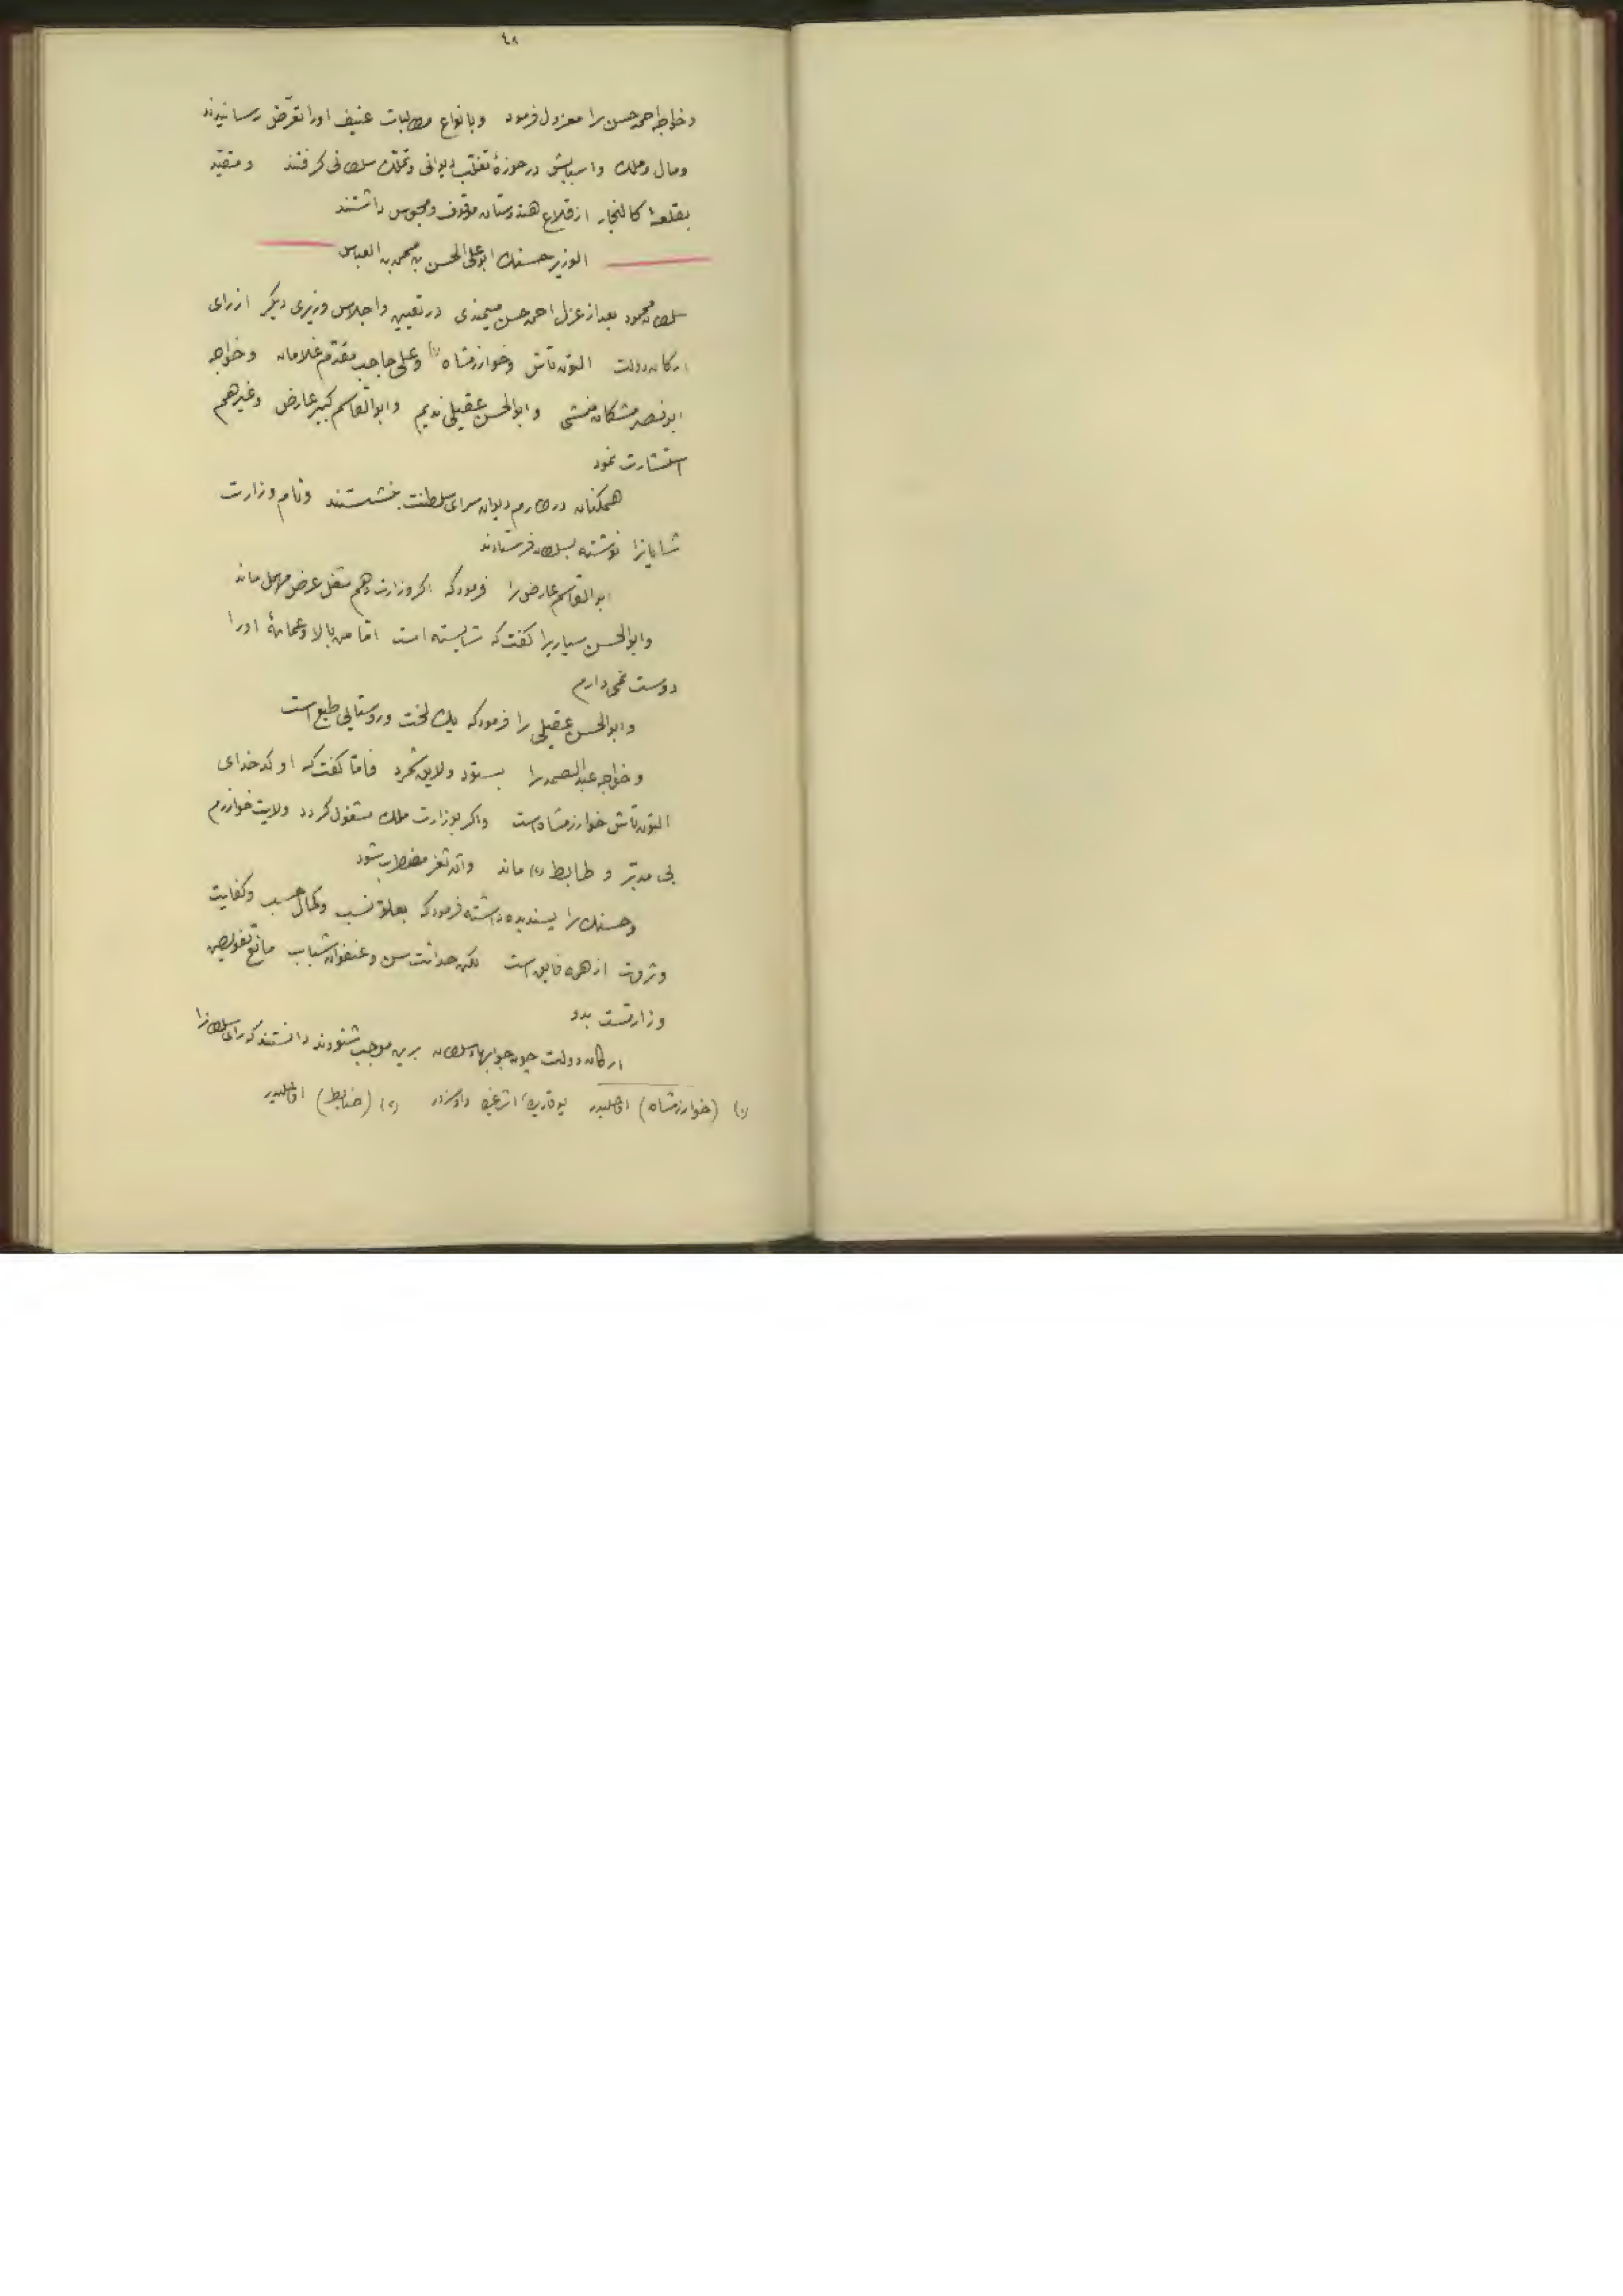 ٤٨
و خواجه احمد حسن را معزول فرمود و بانواع مطالبات عنیف او را تعرّض رسانیدند
و مال و ملك و اسبابش در حوزهٔ تغلّب دیوانی و تملّك سلطانی گرفتند و مقیّد
بقلعهٔ كالنجار از قلاع هندوستان موقوف و محبوس داشتند
الوزیر حسنك ابوعلی الحسن بن محمد بن العباس
سلطان محمود بعد از عزل احمد حسن میمندی در تعیین و اجلاس وزیری دیگر از رای
اركان دولت التون تاش و خوارزمشاه (١) و علی حاجب مقدّم غلامان و خواجه
ابو نصر مشكان منشی و ابوالحسن عقیلی ندیم و ابوالقاسم كبیر عارض و غیرهم
استشارت نمود
همگنان در طارم دیوان سرای سلطنت بنشستند و نام وزارت
شایانرا نوشته بسلطان فرستادند
ابوالقاسم عارض را فرمود كه اگر وزارت دهم شغل عرض مهمل ماند
و ابوالحسن سیاریرا گفت كه شایسته است امّا من بالا و عمامهٔ او را
دوست نمی دارم
و ابوالحسن عقیلی را فرمود كه یك لخت و روستایی طبع است
و خواجه عبدالصمد را بستود و لایق شمرد فامّا گفت كه او كدخدای
التون تاش خوارزمشاه است و اگر بوزارت ملك مشغول گردد ولایت خوارزم
بی مدبّر و ظابط (٢) ماند و آن ثغر مضطرب شود
و حسنك را پسندیده داشته فرمود كه بعلوّ نسب و كمال حسب و كفایت
و ثروت از همه فایق است لكن حداثت سن و عنفوان شباب مانع تفویض
وزارتست بدو
اركان دولت چون جوابهاء سلطان برین موجب شنودند دانستند كه رای سلطانرا
(١) (خوارزمشاه) اولملیدر یوقاریده، اشاغیده واوسزدر (٢) (ضابط) اولملیدر